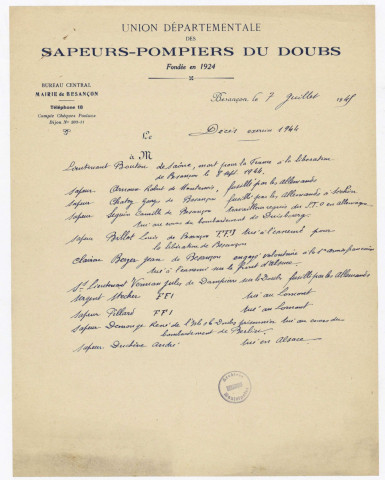 UNION DÉPARTEMENTALE
DES
SAPEURS-POMPIERS DU DOUBS
Fondée en 1924
BUREAU CENTRAL
MAIRIE de BESANÇON
Téléphone 18
Compte Chèques Postaux
Dijon N°
Besançon le 7 Juillet 1945
Le Décès 1944
à M
Lieutenant Bouton de Saône, mort pour la France à la libération
de Besançon le 8 sept 1944.
sapeur Robert de fusillé par les Allemands
sapeur Georges de Besançon fusillé par les Allemands à
sapeur Seguin Camille de Besançon travailleur requis du S.T.O en allemagne
tué au cours du bombardement de Duisbourg
sapeur Billot Louis de Besançon FFI tué à l'ennemi pour
la libération de Besançon
clairon Berger Jean de Besançon engagé volontaire à la 1ère armée française
tué à l'ennemi sur le front d'Alsace
St Lieutenant Jules de Dampierre sur le Doubs fusillé par les Allemands
sergent FFI tué au Lomont
sapeur Villard FFI tué au Lomont
sapeur Demange René de l'Isle s/le Doubs prisonnier tué au cours du
bombardement de Berlin
sapeur André tué en Alsace